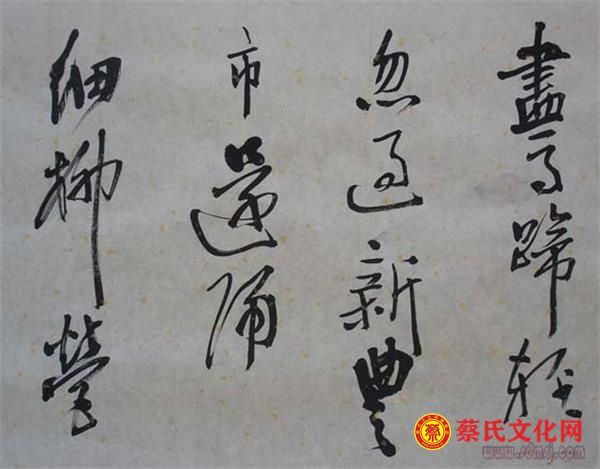 盡馬蹄輕
忽過新豐
市還歸
細柳營
蔡
蔡氏文化网
www.sdmsj.com